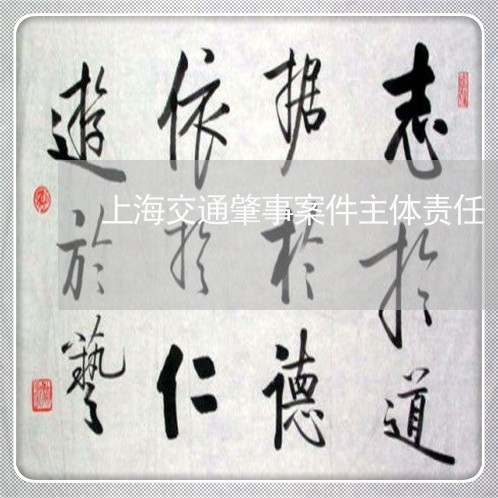 志於道
据於德
依於仁
遊於藝
上海交通肇事案件主体责任